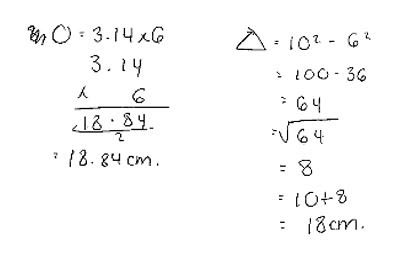 O = 3.14 x 6
3.14
x 6
18.84
2
= 18.84 cm.
△ = 10² - 6²
= 100 - 36
= 64
= √64
= 8
= 10 + 8
= 18cm.